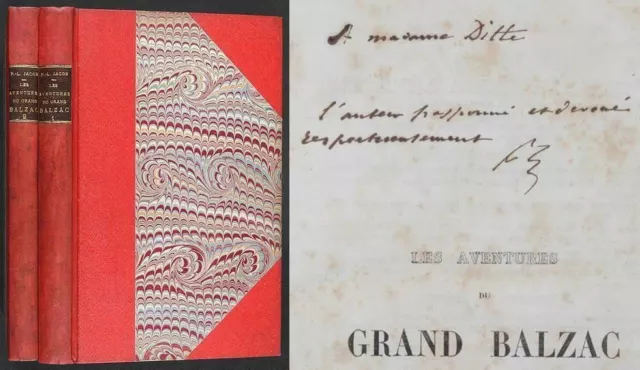 P.-L. JACOB
LES
AVENTURES
DU GRAND
BALZAC
2
P.-L. JACOB
LES
AVENTURES
DU GRAND
BALZAC
1
A madame Ditte
l'auteur passionné et dévoué
respectueusement
LES AVENTURES
DU
GRAND BALZAC